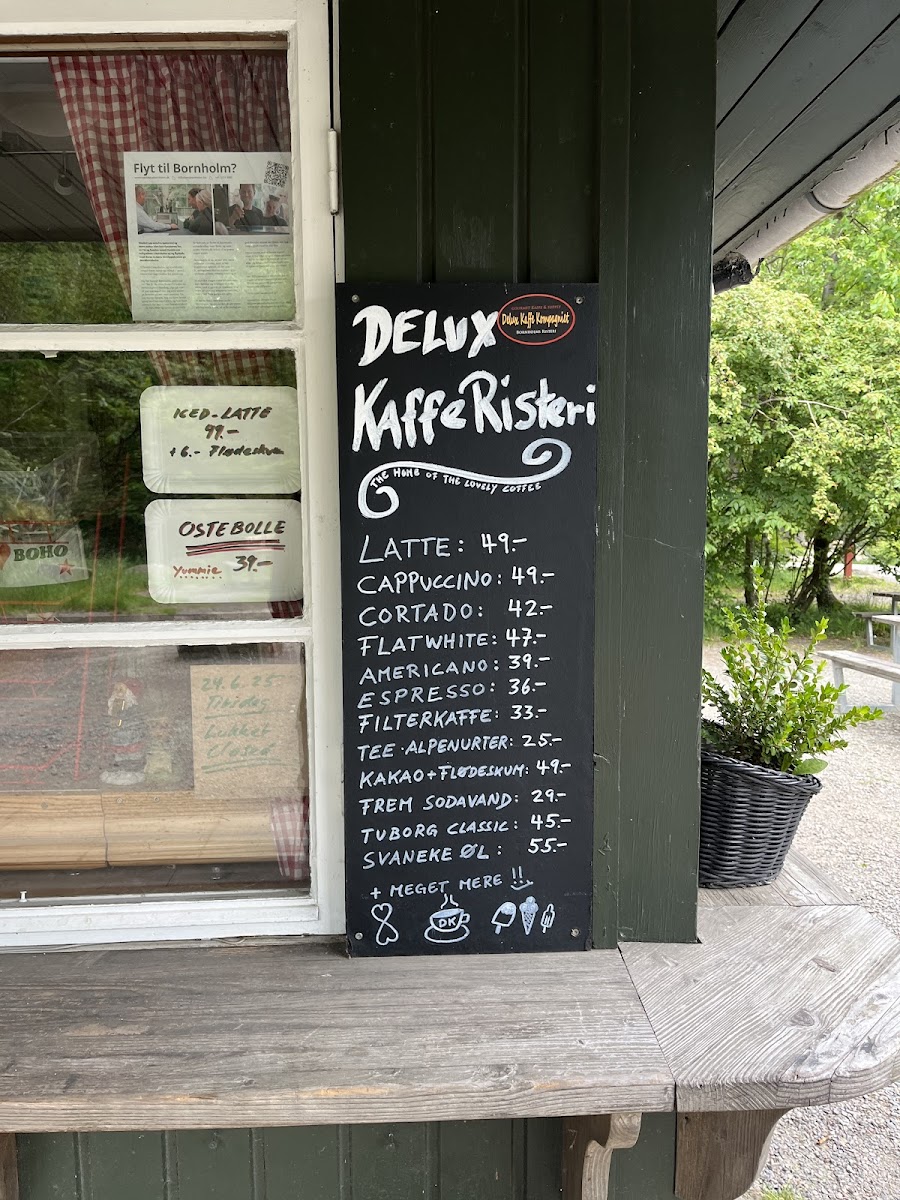 Flyt til Bornholm?
ICED-LATTE
49.-
+6.- Flødeskum
OSTEBOLLE
Yummie 39.-
BOHO
24.6.25
Tirsdag
Lukket
Closed
DELUX
KaffeRisteri
Delux Kaffe Kompagniet
BORNHOLMS RISTERI
THE HOME OF THE LOVELY COFFEE
LATTE: 49.-
CAPPUCCINO: 49.-
CORTADO: 42.-
FLATWHITE: 47.-
AMERICANO: 39.-
ESPRESSO: 36.-
FILTERKAFFE: 33.-
TEE·ALPENURTER: 25.-
KAKAO+FLØDESKUM: 49.-
FREM SODAVAND: 29.-
TUBORG CLASSIC: 45.-
SVANEKE ØL: 55.-
+ MEGET MERE !!
DK